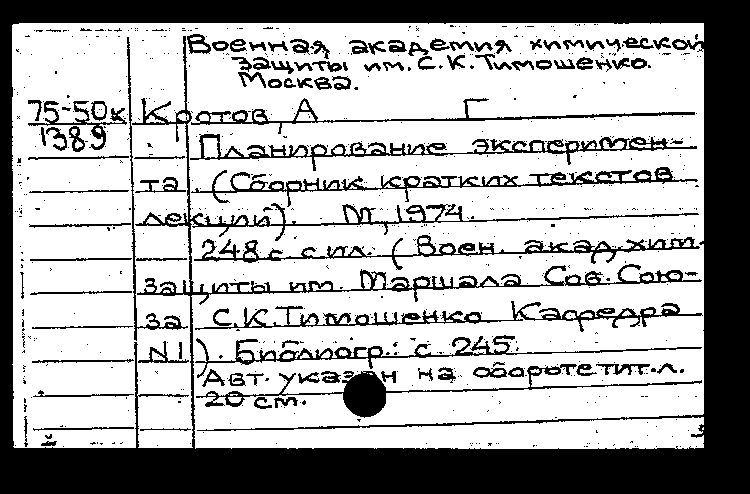 Военная академия химической
защиты им. С.К.Тимошенко.
Москва.
75-50к Кротов, А Г
1389
Планирование эксперимен-
та. (Сборник кратких текстов
лекций). М, 1974.
248 с с ил. (Воен. акад. хим.
защиты им. Маршала Сов. Сою-
за С.К.Тимошенко Кафедра
N 1). Библиогр.: с 245.
Авт. указан на обороте тит.л.
20 см.